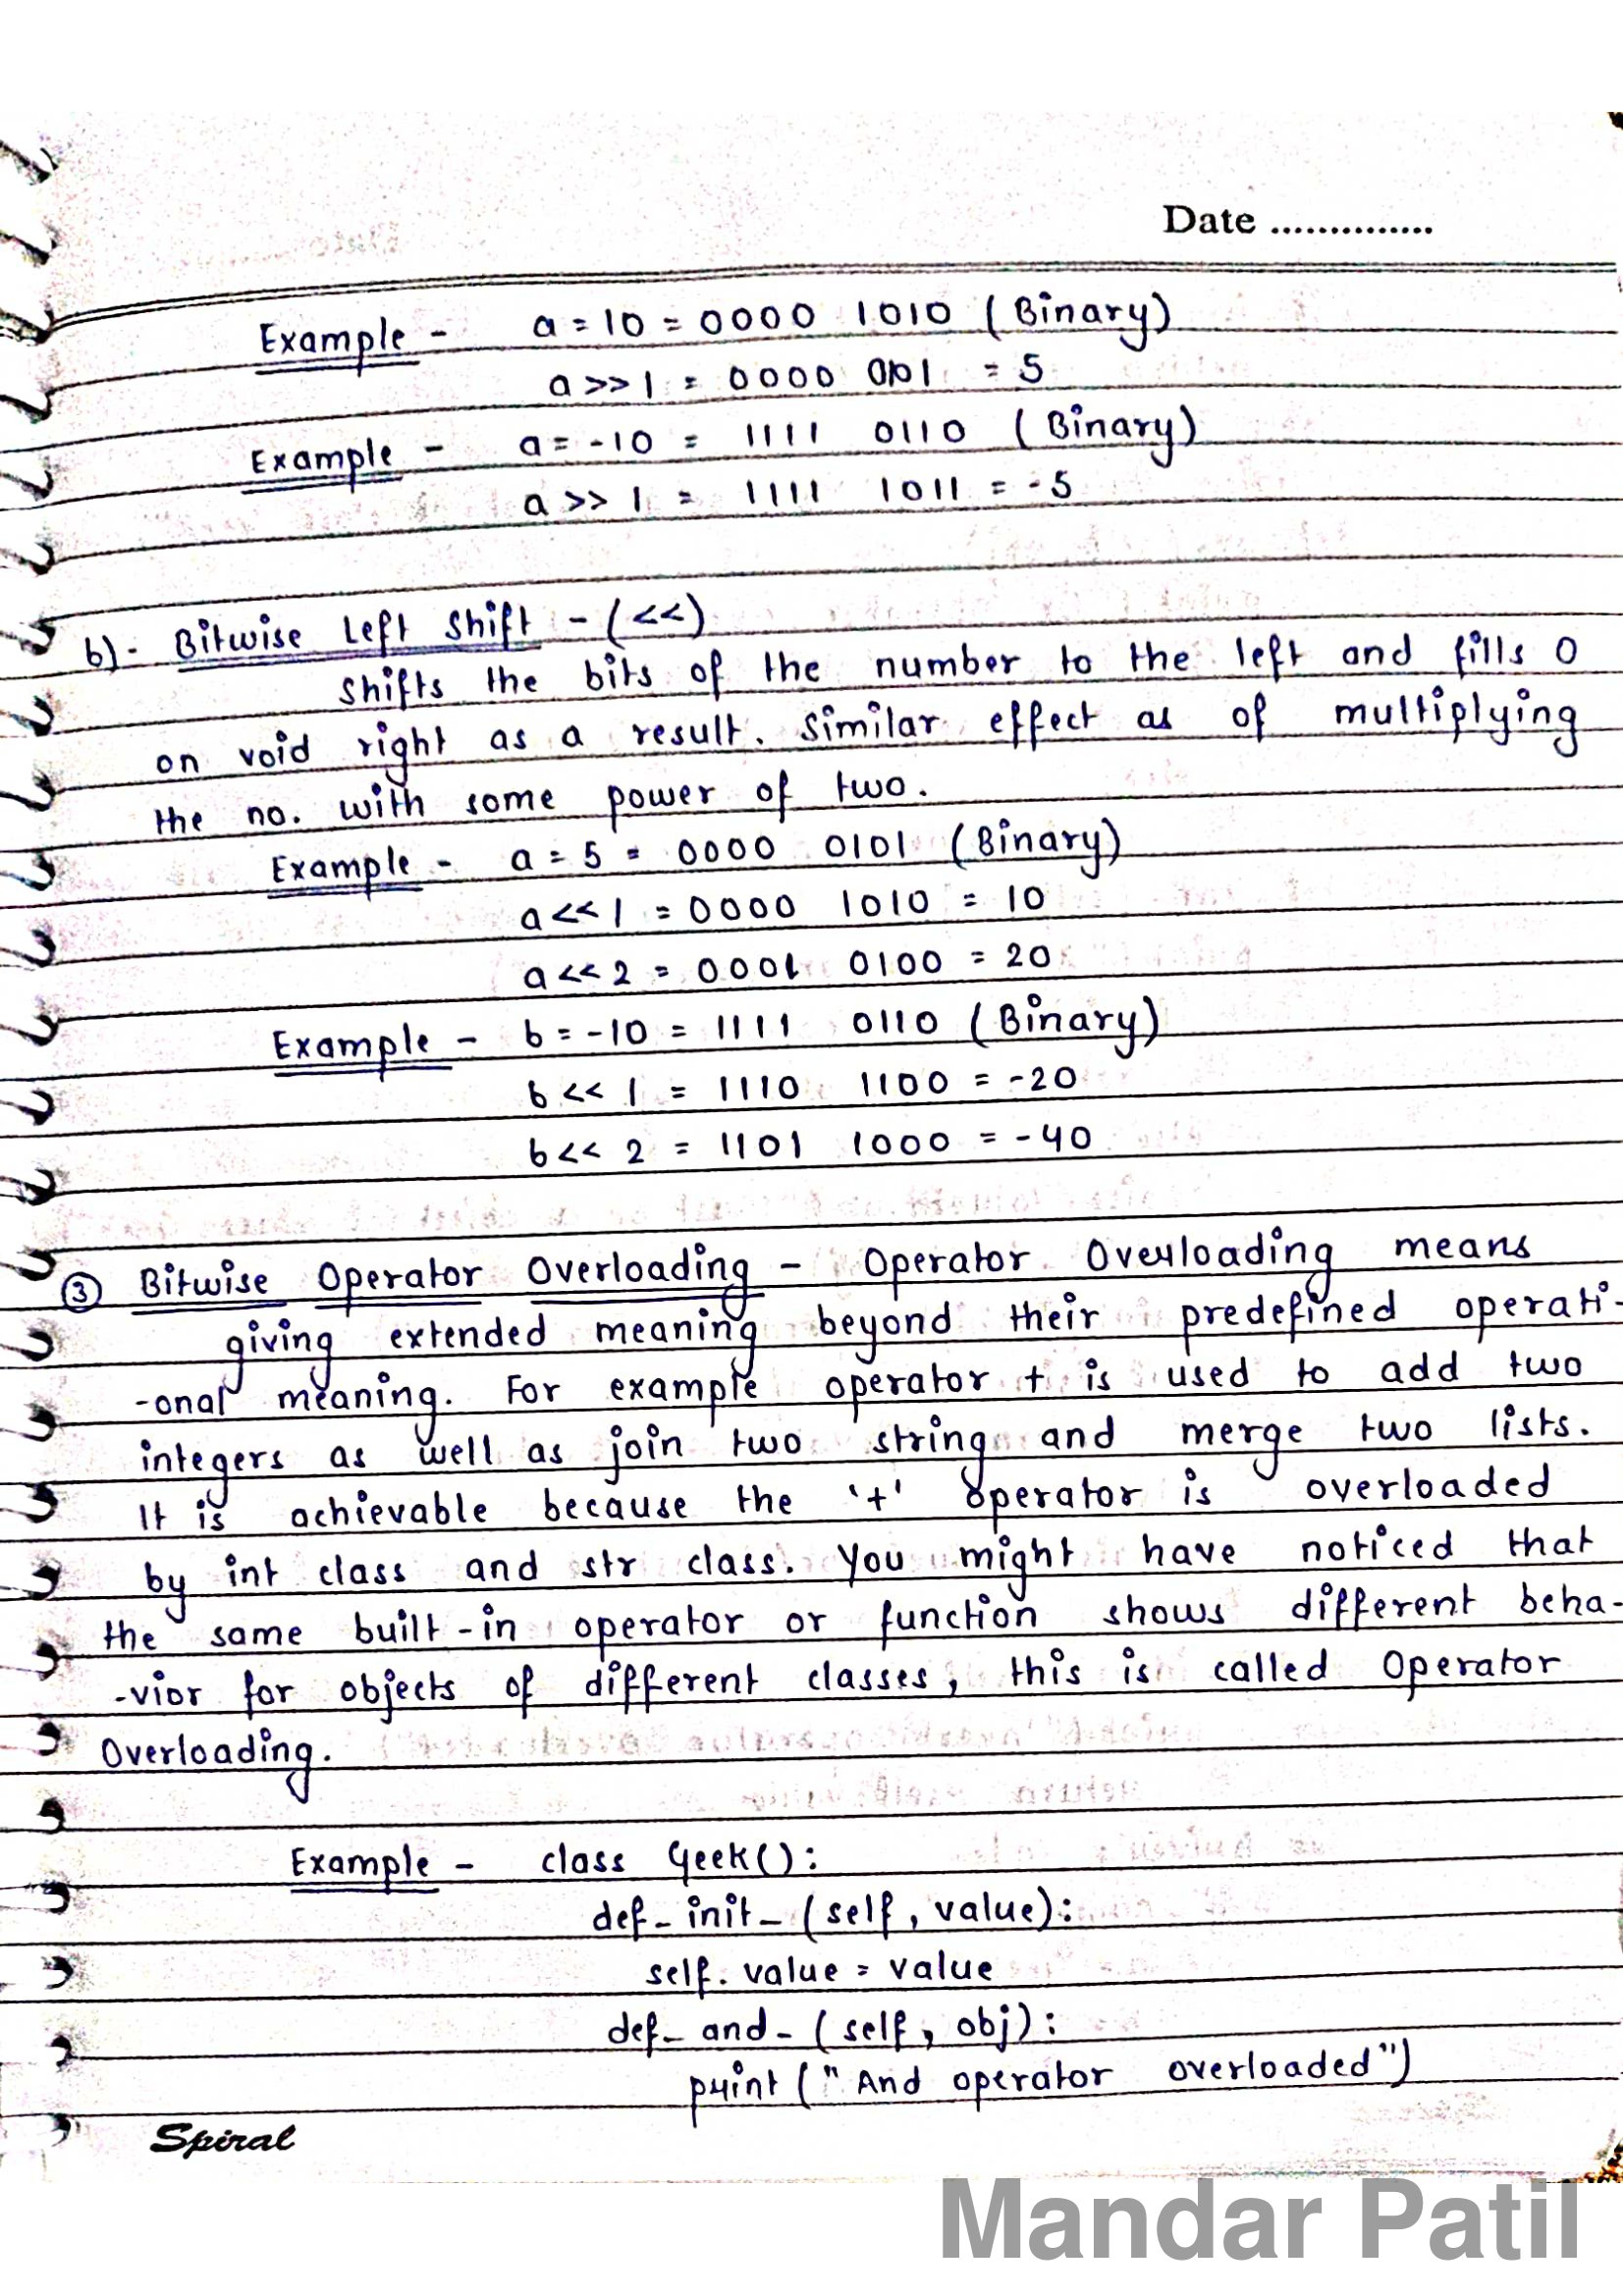 Date ..............
Example - a = 10 = 0000 1010 (Binary)
a >> 1 = 0000 0101 = 5
Example - a = -10 = 1111 0110 (Binary)
a >> 1 = 1111 1011 = -5
b)- Bitwise Left Shift - (<<)
Shifts the bits of the number to the left and fills 0
on void right as a result. Similar effect as of multiplying
the no. with some power of two.
Example - a = 5 = 0000 0101 (Binary)
a << 1 = 0000 1010 = 10
a << 2 = 0001 0100 = 20
Example - b = -10 = 1111 0110 (Binary)
b << 1 = 1110 1100 = -20
b << 2 = 1101 1000 = -40
③ Bitwise Operator Overloading - Operator Overloading means
giving extended meaning beyond their predefined operati-
-onal meaning. For example operator + is used to add two
integers as well as join two string and merge two lists.
It is achievable because the '+' operator is overloaded
by int class and str class. You might have noticed that
the same built-in operator or function shows different beha-
-vior for objects of different classes, this is called Operator
Overloading.
Example - class Geek():
def_init_(self, value):
self.value = value
def_and_(self, obj):
print("And operator overloaded")
Spiral
Mandar Patil